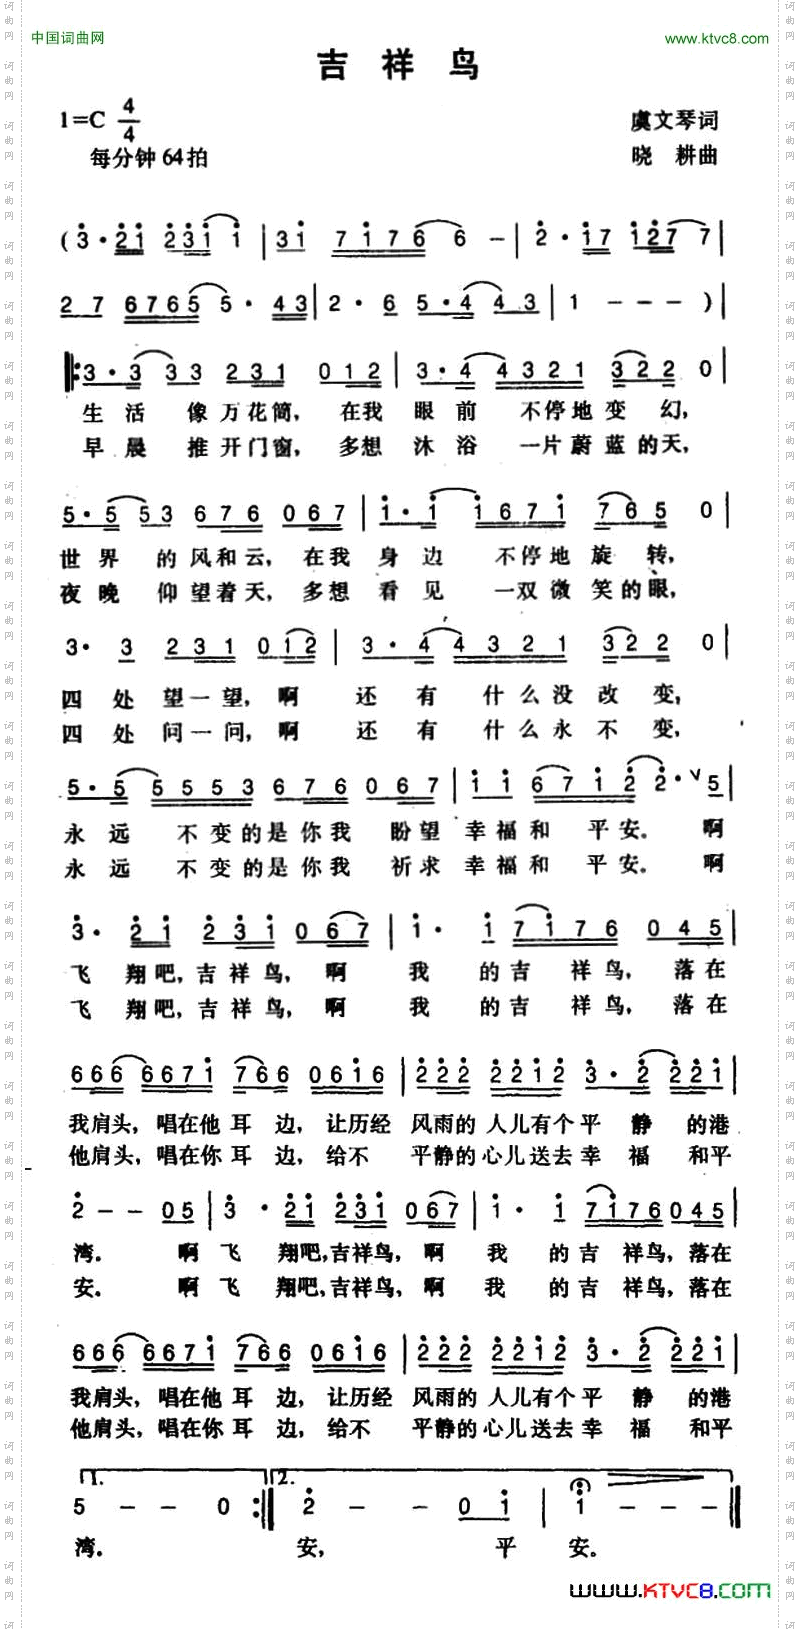 中国词曲网
www.ktvc8.com
吉祥鸟
1=C 4/4
虞文琴词
每分钟64拍
晓 耕曲
(3·21 2311 | 31 71766 - | 2·17 1277 |
27 67655·43 | 2·6 5·443 | 1 - - - ) |
3·3 33 231 012 | 3·4 44321 322 0 |
生活 像万花筒, 在我 眼前 不停地变幻,
早晨 推开门窗, 多想 沐浴 一片蔚蓝的天,
5·5 53 676 067 | 1·1 1671 765 0 |
世界 的风和云, 在我 身边 不停地旋转,
夜晚 仰望着天, 多想 看见 一双微笑的眼,
3·3 231 012 | 3·4 44321 322 0 |
四处望一望, 啊 还有 什么没改变,
四处问一问, 啊 还有 什么永不变,
5·5 5553 676 067 | 11 6712 2·∨5 |
永远 不变的是你我 盼望幸福和 平安. 啊
永远 不变的是你我 祈求幸福和 平安. 啊
3·21 231 067 | 1·1 7176 045 |
飞 翔吧, 吉祥鸟, 啊 我 的吉 祥鸟, 落在
飞 翔吧, 吉祥鸟, 啊 我 的吉 祥鸟, 落在
666 6671 766 0616 | 222 2212 3·2 221 |
我肩头, 唱在他耳 边, 让历经 风雨的 人儿有个平 静 的港
他肩头, 唱在你耳 边, 给不 平静的心儿送去幸 福 和平
2 - - 05 | 3·21 231 067 | 1·1 7176 045 |
湾. 啊飞 翔吧, 吉祥鸟, 啊 我 的吉 祥鸟, 落在
安. 啊飞 翔吧, 吉祥鸟, 啊 我 的吉 祥鸟, 落在
666 6671 766 0616 | 222 2212 3·2 221 |
我肩头, 唱在他耳 边, 让历经 风雨的 人儿有个平 静 的港
他肩头, 唱在你耳 边, 给不 平静的心儿送去幸 福 和平
1. 2.
5 - - 0 :‖ 2 - - 01 | 1 - - - ‖
湾. 安, 平 安.
www.KTVC8.com